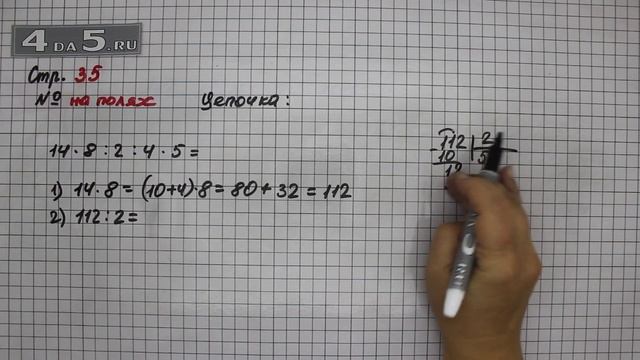 4DA5.RU
Стр. 35
№ на полях Цепочка:
14 · 8 : 2 : 4 · 5 =
1) 14 · 8 = (10+4) · 8 = 80 + 32 = 112
2) 112 : 2 =
112 | 2
10 | 5
12